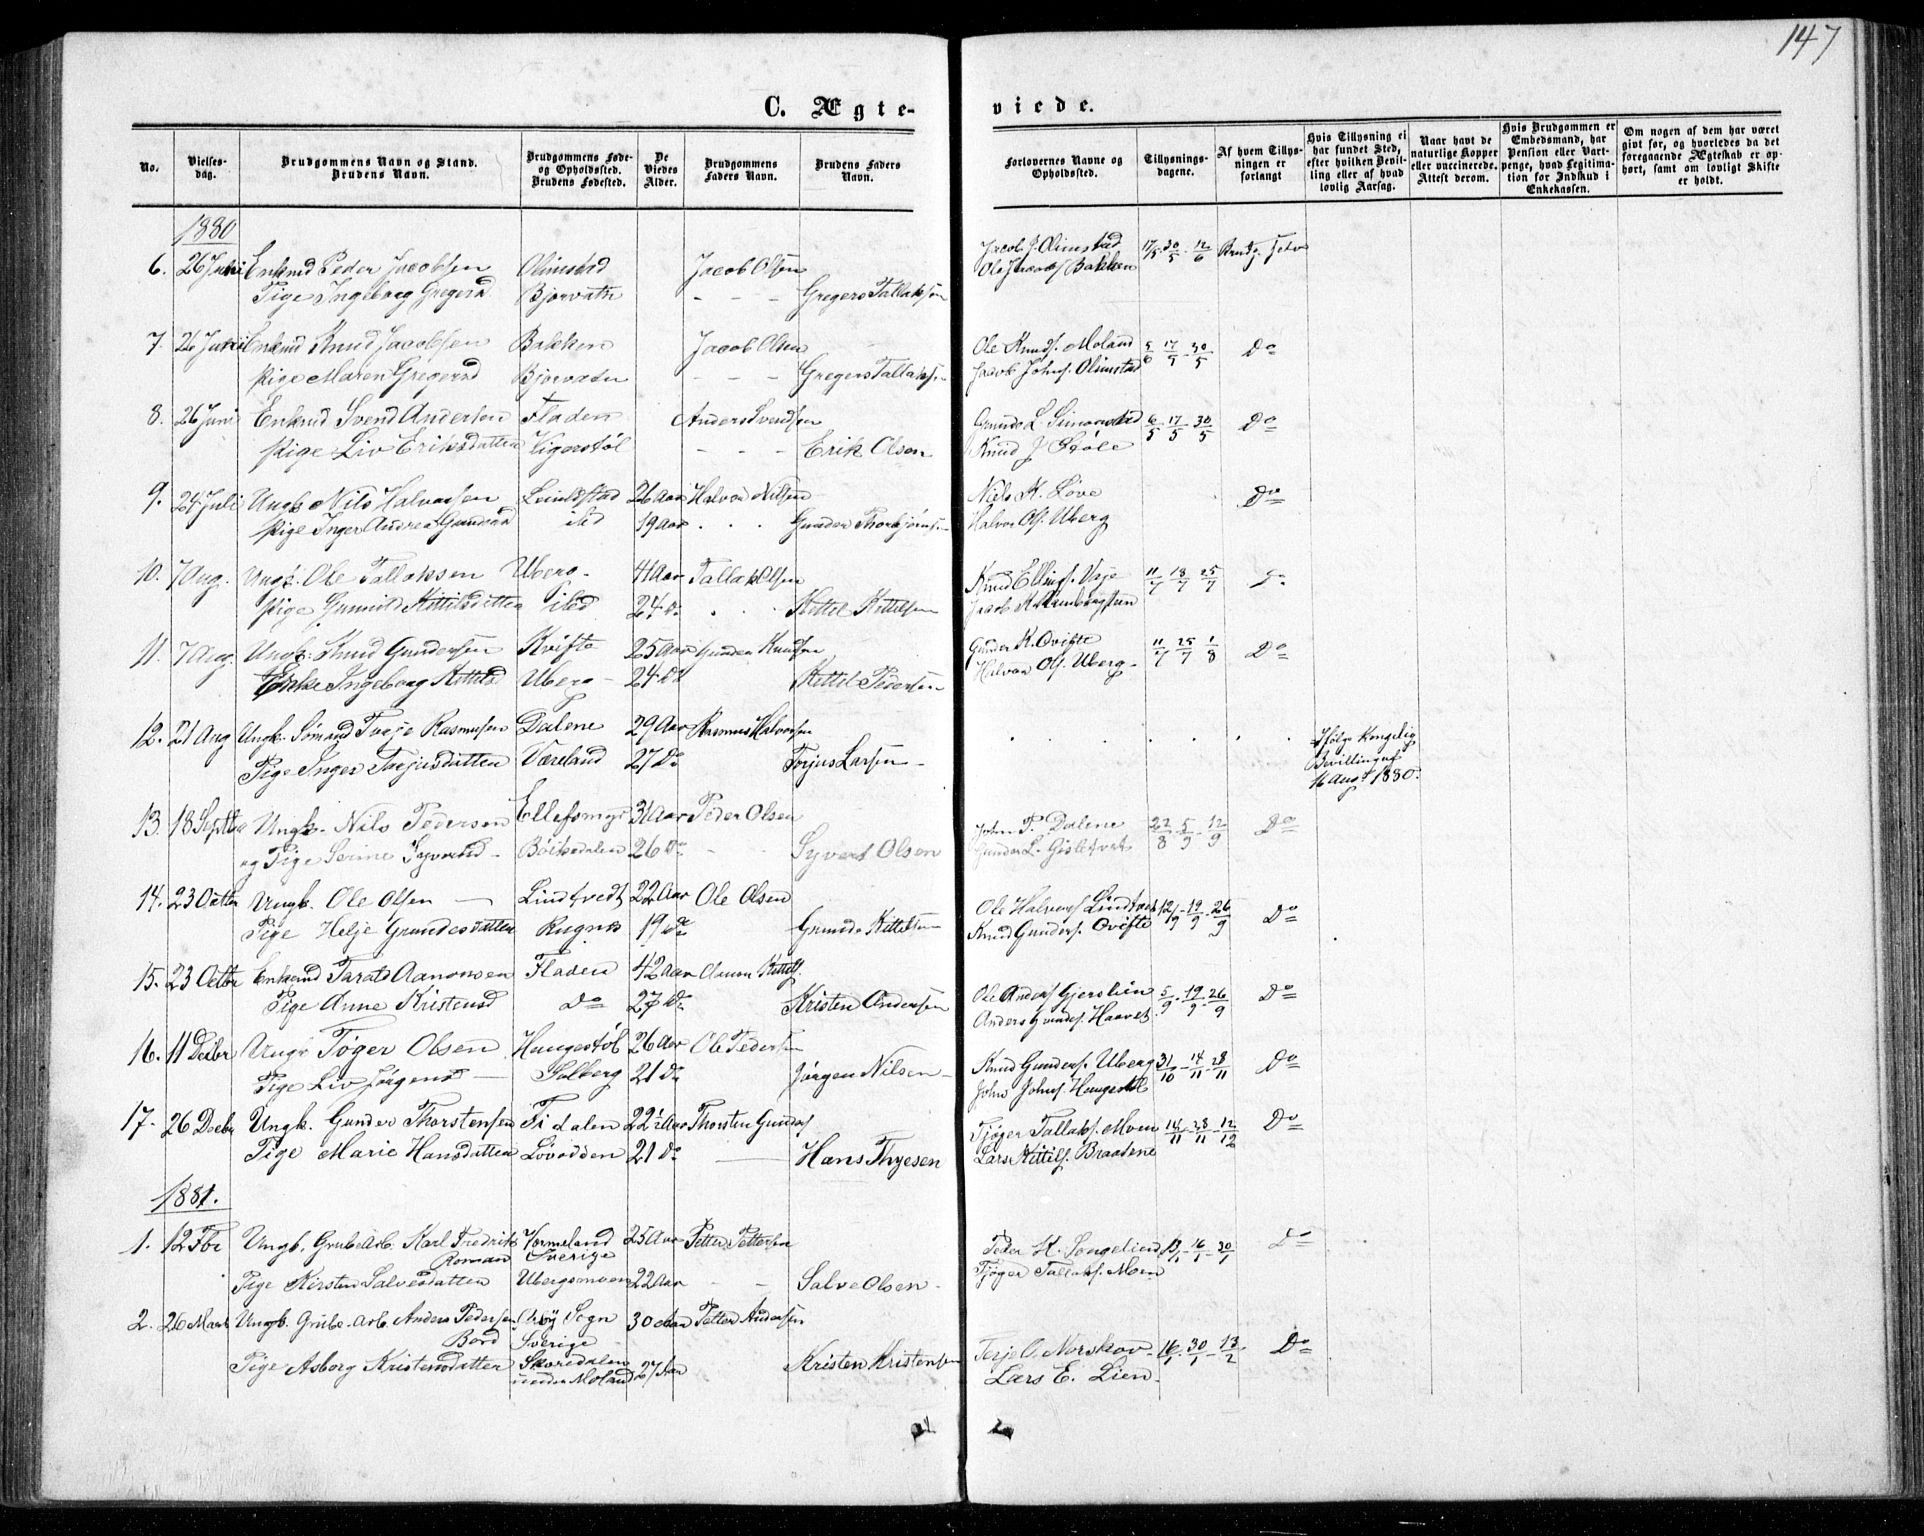 147
C. Ægteviede.
No.
Vielsesdag.
Brudgommens Navn og Stand. Brudens Navn.
Brudgommens Føde- og Opholdssted. Brudens Fødested.
De Viedes Alder.
Brudgommens Faders Navn.
Brudens Faders Navn.
Forlovernes Navne og Opholdssted.
Tillysningsdagene.
Af hvem Tillysningen er forlangt
Hvis Tillysning ei har fundet Sted, efter hvilken Bevilling eller af hvad lovlig Aarsag.
Naar havt de naturlige Kopper eller vaccinerede. Attest derom.
Hvis Brudgommen er Embedsmand, har Pension eller Vartpenge, hvad Legitimation for Indskud i Enkekassen.
Om nogen af dem har været givt før, og hvorledes da det foregaaende Ægteskab er ophørt, samt om lovligt Skifte er holdt.
1880
6. 26 Juni Enkmd Peder Jacobsen Olimstad Jacob Olsen Jacob J. Olimstad 17/5 30/5 12/6
Pige Ingeborg Gregersd Bjorvatn - - - Gregers Tallaksen Ole Bakken
7. 26 Juni Enkmd Knud Jacobsen Bakken Jacob Olsen Ole Knuds. Moland 5/6 17/5 30/5 Do
Pige Maren Gregersd Bjorvatn - - - Gregers Tallaks. Jacob Johns. Olimstad
8. 26 Juni Enkmd Svend Andersen Fladen Anders Svendsen L. Simonstad 6/5 17/5 30/5 Do
Pige Liv Eriksdatten Vigerstøl - - - Erik Olsen Knud J.
9. 24 Juli Ungk Nils Halvorsen 26 Aar Halvor Nilsen Niels K. Løve Do
Pige Inger Andrea Gundersd ibd 19 Aar . . Gunder Thorbjørns. Halvor Ols. Uberg
10. 7 Aug. Ungk. Ole Tallaksen Uberg 41 Aar Tallak Olsen Knud Ellings. 11/7 18/7 25/7
Pige Gunnild Kittilsdatten ibd 24 Do . . Kittel Kittelsen Jacob K.
11. 7 Aug. Ungk. Knud Gundersen Kvifte 25 Aar Gunder Knudsen Gunder K. Ovifte 11/7 25/7 1/8 Do
Enke Ingeborg Kittilsd Uberg 24 Do Kittel Pedersen Halvor Ols. Uberg
12. 21 Aug Ungk. Sømand Terje Rasmusen Dalene 29 Aar Rasmus Halvorsen . . . . . . Ifølge Kongelig
Pige Inger Terjusdatten Væreland 27 Do Torjus Larsen Bevilling af
16 Aug. 1880.
13. 18 Septbr Ungk. Nils Pedersen 31 Aar Peder Olsen John P. Dalene 22/8 5/9 12/9 Do
og Pige Serine Syversd Bøiksdalen 26 Do - - Syvert Olsen Gunder L.
14. 23 Octbr Ungk. Ole Olsen Lindtvedt 22 Aar Ole Olsen Ole Halvors Lindtvedt 12/9 19/9 26/9 Do
Pige Helje Grundesdatten Rugnes 19 Do Grunde Kittelsen Knud Gunders. Ovifte
15. 23 Octbr Enkemd Tarald Aanonsen Fladen 42 Aar Aanon Kittels. Ole Anders Gjerslien 5/9 19/9 26/9 Do
Pige Anne Kristensd Do 27 Do Kristen Andersen Anders Haavet
16. 11 Decbr Ungk Tøger Olsen Haugestøl 26 Aar Ole Pedersen Knud Gunders. Uberg 31/10 14/11 28/11 Do
Pige Liv Jørgensd Solberg 21 Do Jørgen Nilsen John Johns. Haugestøl
17. 26 Decbr Ungk. Gunder Thorstensen Fidalen 22½ Aar Thorsten Gunders Tjøger Tallaks. Moen 14/11 28/11 12/12 Do
Pige Marie Hansdatten Løvodden 21 Do - Hans Thyesen Lars Kittils. Braatene
1881.
1. 12 Fbr Ungk. Grubearb. Karl Fredrik Vermeland 25 Aar Petter Pettersen Peder K. Songelien 13/1 16/1 30/1 Do
Roman Sverige
Pige Kirsten Salvesdatten Ubergsmoen 22 Aar - - Salve Olsen Tjøger Tallaks. Moen
2. 26 Marts Ungk. Grube-Arb. Anders Pedersen Sogn 30 Aar Petter Andersen Terje O. Norskov 16/1 30/1 13/2 Do
Bord Sverige
Pige Asborg Kristensdatter Skoredalen 27 Aar Kristen Kristensen Lars E. Lien
under Moland